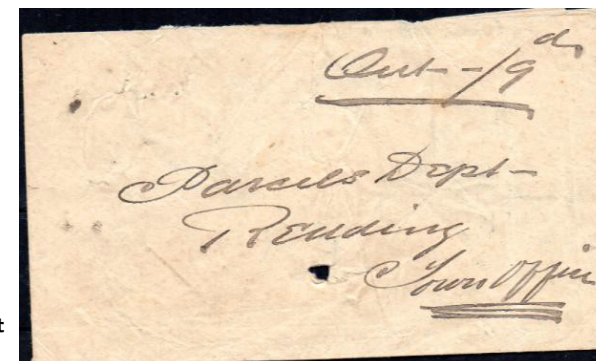 Out - /9 d
Parcels Dept
Reading
Town Office
t